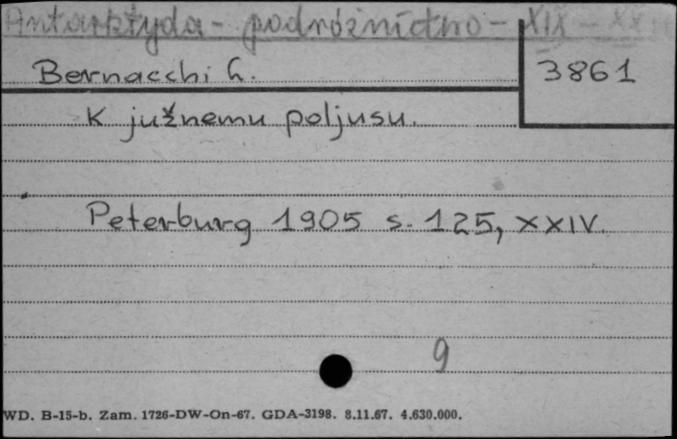 Antarktyda - podróżnictwo - XIX - XX w
Bernacchi L.
3861
K južnemu poljusu.
Peterburg 1905 s. 125, XXIV.
9
WD. B-15-b. Zam. 1726-DW-On-67. GDA-3198. 8.11.67. 4.630.000.